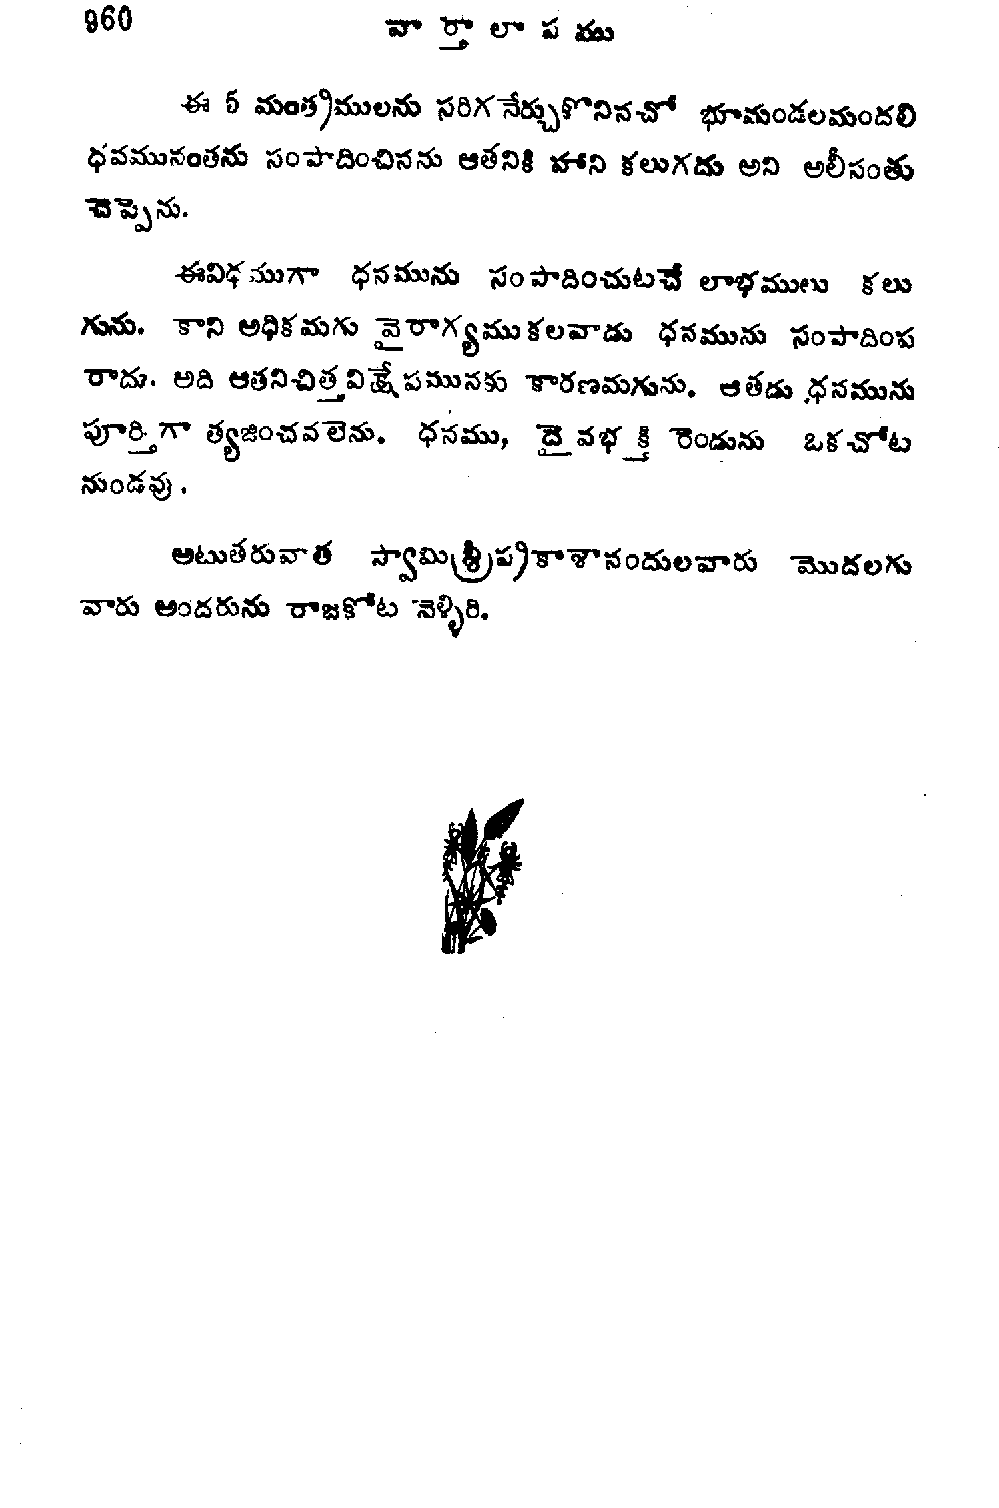 ౧౬౦ వార్తాలాపము
ఈ ౯ మంత్రములను సరిగ నేర్చుకొనినచో భూమండలమందలి
ధవమునంతను సంపాదించినను ఆతనికి హాని కలుగదు అని అలీసంతు
చెప్పెను.
ఈవిధముగా ధనమును సంపాదించుటచే లాభములు కలు
గును. కాని అధికమగు వైరాగ్యము కలవాడు ధనమును సంపాదింప
రాదు. అది ఆతనిచిత్త విక్షేపమునకు కారణమగును. ఆతడు ధనమును
పూర్తిగా త్యజించవలెను. ధనము, దైవభక్తి రెండును ఒకచోట
నుండవు.
అటుతరువాత స్వామిశ్రీప్రకాశానందులవారు మొదలగు
వారు అందరును రాజకోట నెళ్ళిరి.